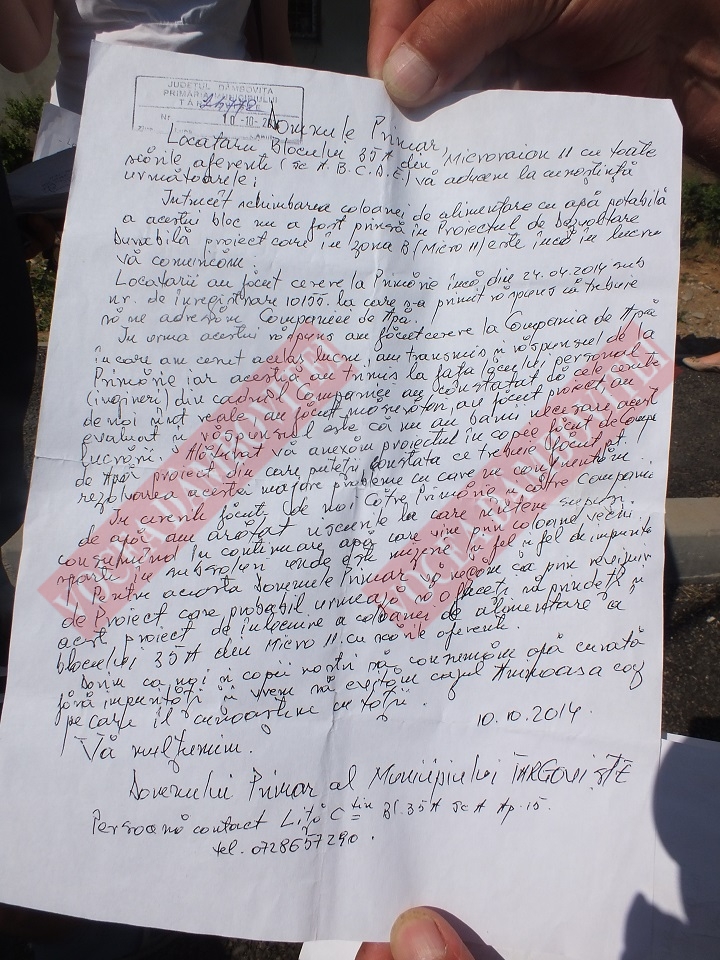 JUDEȚUL DÂMBOVIȚA
PRIMĂRIA MUNICIPIULUI
Nr.
10-10-
Domnule Primar,
Locatarii Blocului 35A din Microraion 11 cu toate
scările aferente (sc A.B.C.D.E.) vă aducem la cunoștință
următoarele:
Întrucît schimbarea coloanei de alimentare cu apă potabilă
a acestui bloc nu a fost prinsă în Proiectul de Dezvoltare
Durabilă proiect care în zona B (Micro 11) este încă în lucru
vă comunicăm:
Locatarii au făcut cerere la Primărie încă din 24.04.2014 sub
nr. de înregistrare 10155. la care s-a primit răspuns că trebuie
să ne adresăm Companiei de Apă.
În urma acestui răspuns am făcut cerere la Compania de Apă
în care am cerut același lucru, am transmis și răspunsul de la
Primărie iar aceștia au trimis la fața locului personal
(ingineri) din cadrul Companiei au constatat că cele cerute
de noi sînt reale, au făcut măsurători, au făcut proiect au
evaluat și răspunsul este că nu au banii necesari acestei
lucrări. Alăturat vă anexăm proiectul în copie făcut de Comp.
de Apă proiect din care puteți constata ce trebuie făcut pt.
rezolvarea acestei majore probleme cu care ne confruntăm.
În cererile făcute de noi către Primărie și către Compania
de apă am arătat riscurile la care sîntem supuși
consumînd în continuare apă care vine prin coloane vechi
sparte în subsoluri unde este mizerie și fel și fel de impurități
Pentru aceasta Domnule Primar vă rugăm ca prin revizuirea
de Proiect care probabil urmează să o faceți să prindeți și
acest proiect de înlocuire a coloanei de alimentare a
blocului 35A din Micro 11 cu scările aferente.
Dorim ca noi și copii noștri să consumăm apă curată
fără impurități și vrem să evităm cazul Aninoasa caz
pe care îl cunoaștem cu toții.
10.10.2014.
Vă mulțumim.
Domnului Primar al Municipiului TÂRGOVIȘTE
Persoană contact Liță C-tin Bl. 35A Sc A Ap. 15.
tel. 0728657290.
VOCEA DAMBOVITEI